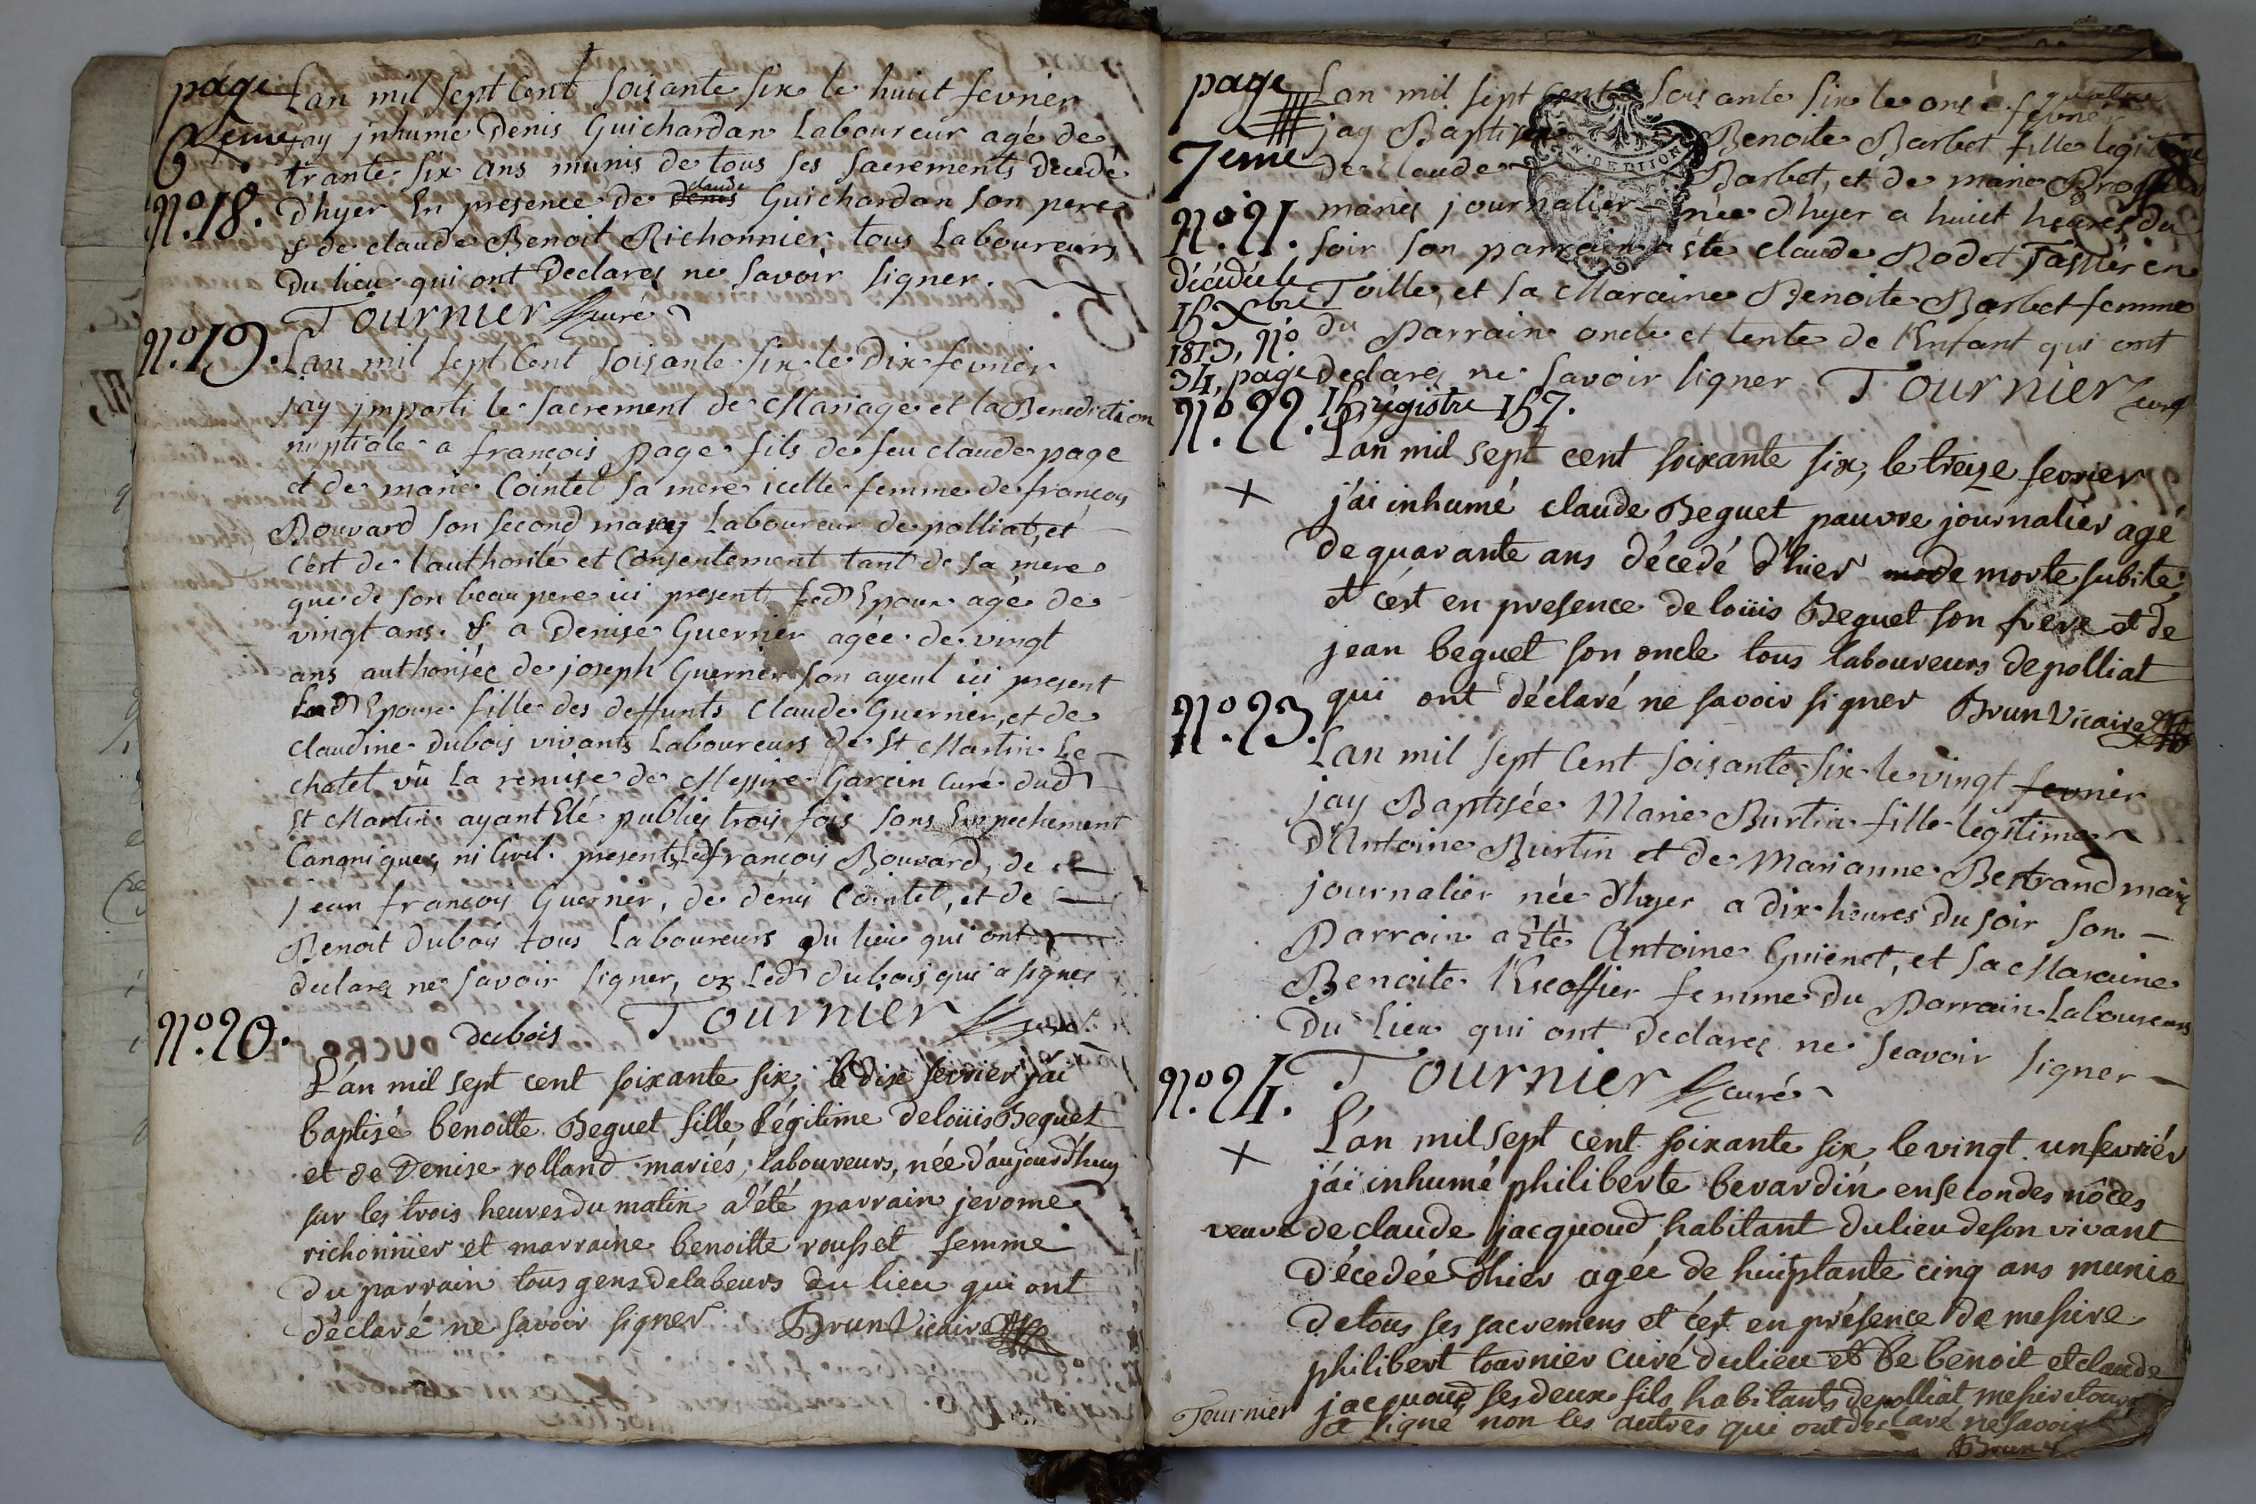 page
6eme
Lan mil sept Cent soixante six le huict fevrier
jay jnhumé Denis Guichardan Laboureur agé de
trante six ans munis de tous ses sacrements decedé
n.o 18. D'hyer En presence de Denis claude Guichardan son pere
& de claude Benoit Richonnier tous Laboureurs
Du lieu qui ont Declares ne savoir signer.
Tournier curé
n.o 19.
Lan mil sept Cent soisante six le dix fevrier
jay imparti le sacrement de Mariage et la Benediction
nuptiale a françois page fils de feu claude page
et de marie Cointet sa mere icelle femme de françois
Bouvard son second marey Laboureur de polliat, et
c'est de l'authorité et Consentement tant de sa mere
que de son beau pere ici present Led Epoux agé de
vingt ans. & a Denise Guerrier agée de vingt
ans authorisée de joseph Guerrier son ayeul ici present
Lad Epouse fille des deffunts Claude Guerrier, et de
claudine dubois vivants Laboureurs de St Martin Le
chatel vû La remise de Messire Garcin curé dud
St Martin ayant Eté publies trois fois sans Empechement
Canonique, ni Civil. presents Led françois Bouvard, de
jean françois Guerrier, de denis Cointet, et de
Benoit dubois tous Laboureurs du lieu qui ont
declare ne savoir signer, ox Led dubois qui a signer
dubois Tournier curé
n.o 20.
L'an mil sept cent soixante six, le dix fevrier j'ai
baptisé benoitte Beguet fille légitime de loüis Beguet
et de Denise rolland mariés, laboureurs, née d'aujourdhuy
sur les trois heures du matin a été parrain jerome
richonnier et marraine benoitte rousset femme
du parrain tous gens de labeurs du lieu qui ont
déclaré ne savoir signer Brun Vicaire
page
7eme
Lan mil sept Cent soisante six le onse fevrier
jay Baptisée Benoite Barbet fille legitime
de claude Barbet, et de marie
n.o 21. mariés journalier née d'hyer a huict heures du
soir son parrain a été claude Rodet Tassier en
décédée le
15 Xbre
1813, n.o
34, page
15 régistre 157.
Toille, et sa Maraine Benoite Barbet femme
du Parrain oncle et tente de l'Enfant qui ont
declares ne savoir signer Tournier curé
n.o 22.
L'an mil sept cent soixante six, le treize fevrier
+ j'ai inhumé claude Beguet pauvre journalier agé
de quarante ans décedé d'hier de morte subite,
et c'est en presence de loüis Beguet son frere et de
jean beguet son oncle tous laboureurs de polliat
qui ont déclaré ne savoir signer Brun Vicaire
n.o 23.
Lan mil sept Cent soisante six le vingt fevrier
jay Baptisée Marie Burtin fille legitime
D'Antoine Burtin et de Marianne Bertrand mariés
journalier née d'hyer a dix heures du soir son
Parrain a été Antoine Guienet, et sa Maraine
Benoite l'Escoffier femme du Parrain Laboureurs
Du lieu qui ont declares ne scavoir signer
Tournier curé
n.o 24.
L'an mil sept cent soixante six le vingt un fevriér
+ j'ai inhumé philiberte berardin en secondes nôces
veuve de claude jacquoud habitant du lieu de son vivant
décedée d'hier agée de huiptante cinq ans munie
de tous ses sacremens et c'est en présence de messire
philibert tournier curé du lieu et de benoit et claude
jacquoud ses deux fils habitants de polliat messire tour
Tournier a signé non les autres qui ont declaré ne savoir
Brun